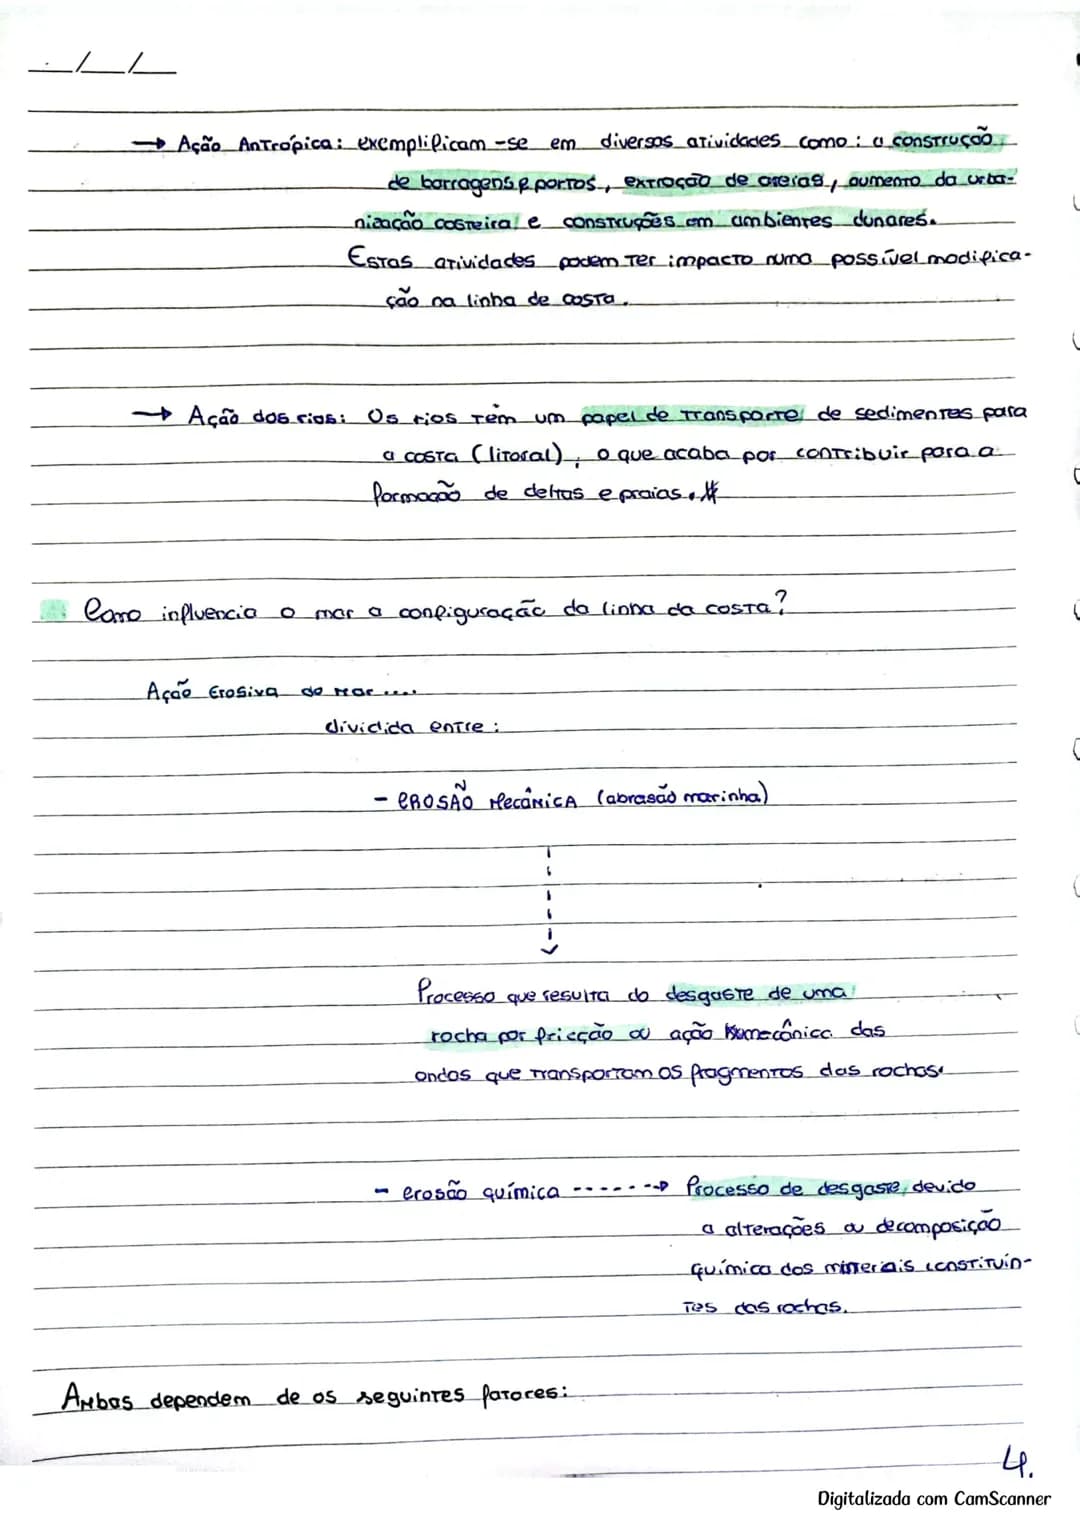 _/_/_
→ Ação Antrópica: exemplificam-se em diversas atividades como: a construção
de barragens e portos, extração de areias, aumento da urba-
nização costeira e construções em ambientes dunares.
Estas atividades podem ter impacto numa possível modifica-
ção na linha de costa.
→ Ação dos rios: Os rios têm um papel de transporte de sedimentes para
a costa (litoral), o que acaba por contribuir para a
formação de deltas e praias.
Como influencia o mar a configuração da linha da costa?
Ação Erosiva do Mar....
dividida entre:
- EROSÃO MecâNicA (abrasão marinha)
Processo que resulta do desgaste de uma
rocha por fricção ou ação das
ondas que transportam os fragmentos das rochas.
- erosão química ------→ Processo de desgaste, devido
a alterações ou decomposição
química dos minerais constituin-
tes das rochas.
Ambas dependem de os seguintes fatores:
4.
Digitalizada com CamScanner